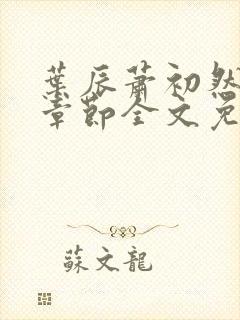 葉辰蕭初然
章節全文免
蘇文龍